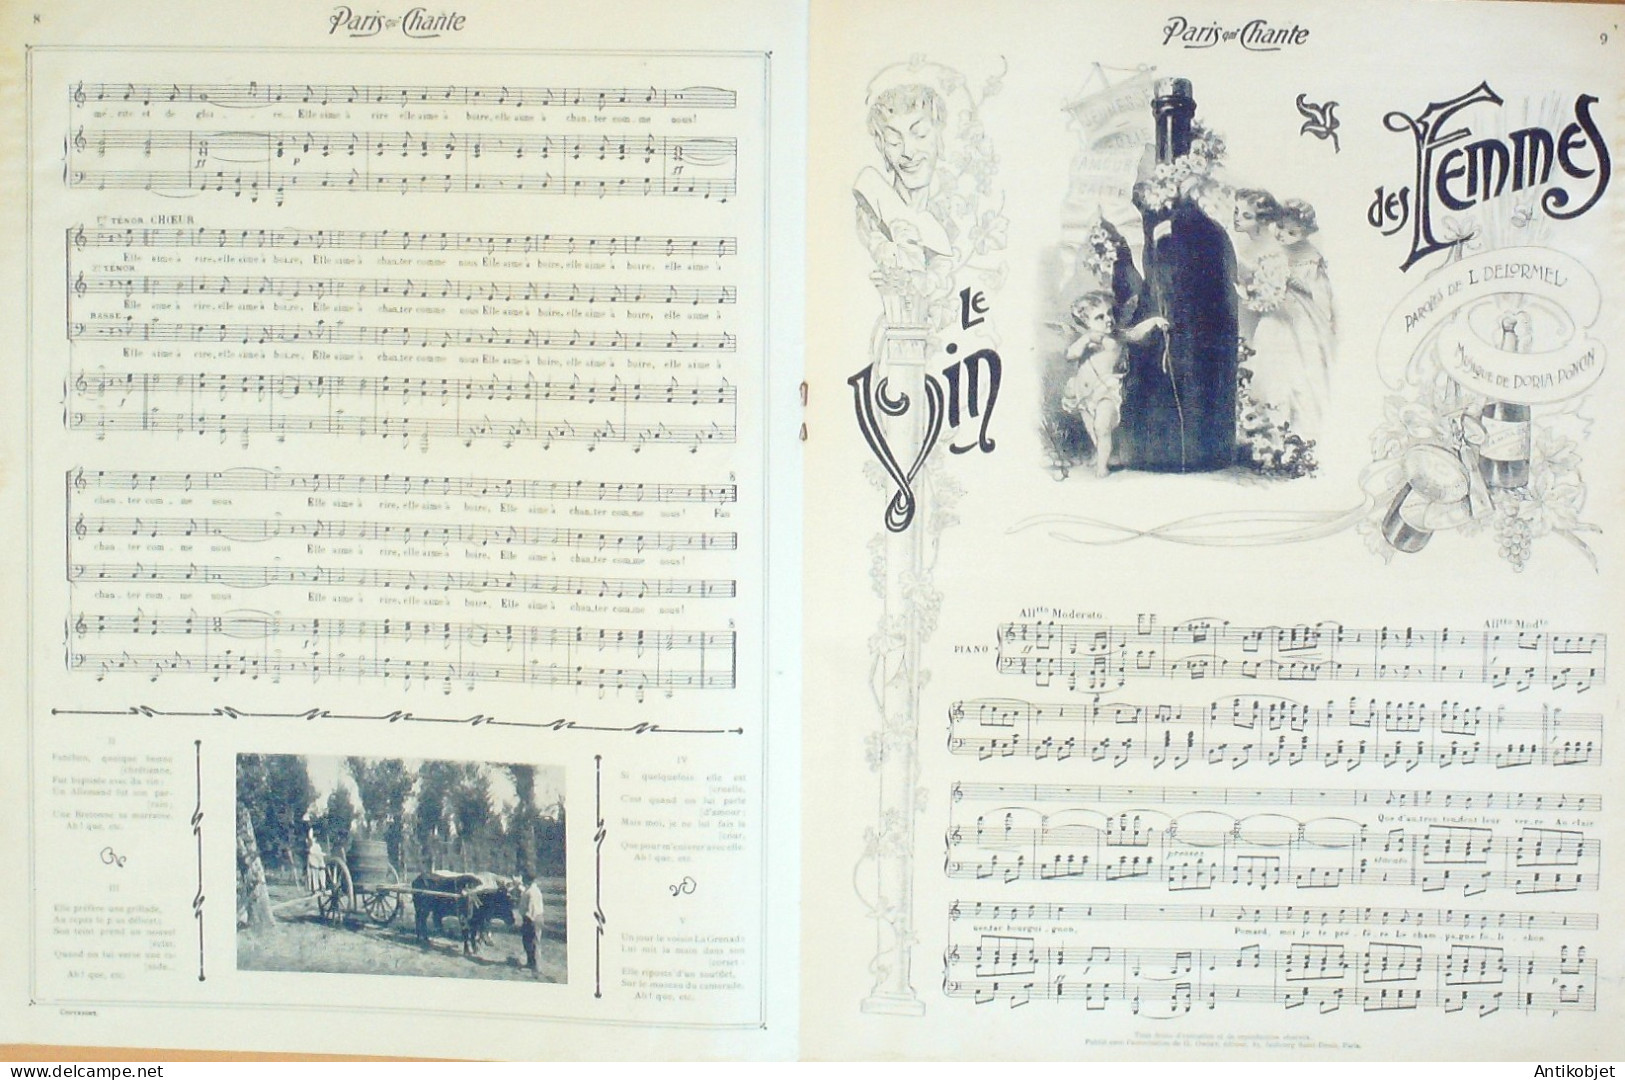 8
Paris qui Chante
mé..rite et de gloi . . re... Elle aime à rire elle aime à boire, elle aime à chan.ter com.me nous!
1er TÉNOR CHŒUR
Elle aime à rire, elle aime à boi.re, Elle aime à chan.ter comme nous Elle aime à boire, elle aime à boire, elle aime à
2e TÉNOR
Elle aime à rire, elle aime à boi.re, Elle aime à chan.ter comme nous Elle aime à boire, elle aime à boire, elle aime à
BASSE
Elle aime à rire, elle aime à boi.re, Elle aime à chan.ter comme nous Elle aime à boire, elle aime à boire, elle aime à
chan . ter com . . me nous Elle aime à rire, elle aime à boire, Elle aime à chan.ter com.me nous! Fan
chan . ter com . . me nous Elle aime à rire, elle aime à boire, Elle aime à chan.ter com.me nous!
chan . ter com . . me nous Elle aime à rire, elle aime à boire, Elle aime à chan.ter com.me nous!
II
Fanchon, quoique bonne
(chrétienne,
Fut baptisée avec du vin;
Un Allemand fut son par-
(rain;
Une Bretonne sa marraine.
Ah! que, etc.
III
Elle préfère une grillade,
Au repas le plus délicat;
Son teint prend un nouvel
(éclat,
Quand on lui verse une ra-
(sade.
Ah! que, etc.
IV
Si quelquefois elle est
(cruelle,
C'est quand on lui parle
(d'amour;
Mais moi, je ne lui fais la
(cour,
Que pour m'enivrer avec elle.
Ah! que, etc.
V
Un jour le voisin La Grenade
Lui mit la main dans son
(corset:
Elle riposta d'un soufflet,
Sur le museau du camarade.
Ah! que, etc.
Paris qui Chante
9
LE Vin
des Femmes
PAROLES DE L. DELORMEL
MUSIQUE DE DORIA-PONCIN
Allto Moderato.
Allto Modto
PIANO
Que d'autres tendent leur ver..re Au clair
nectar bourgui . gnon, Pomard, moi je te pré . fè . re Le cham . pa . gne fo . li . chon.
Tous droits d'exécution et de reproduction réservés.
delcampe.net
Antikobjet